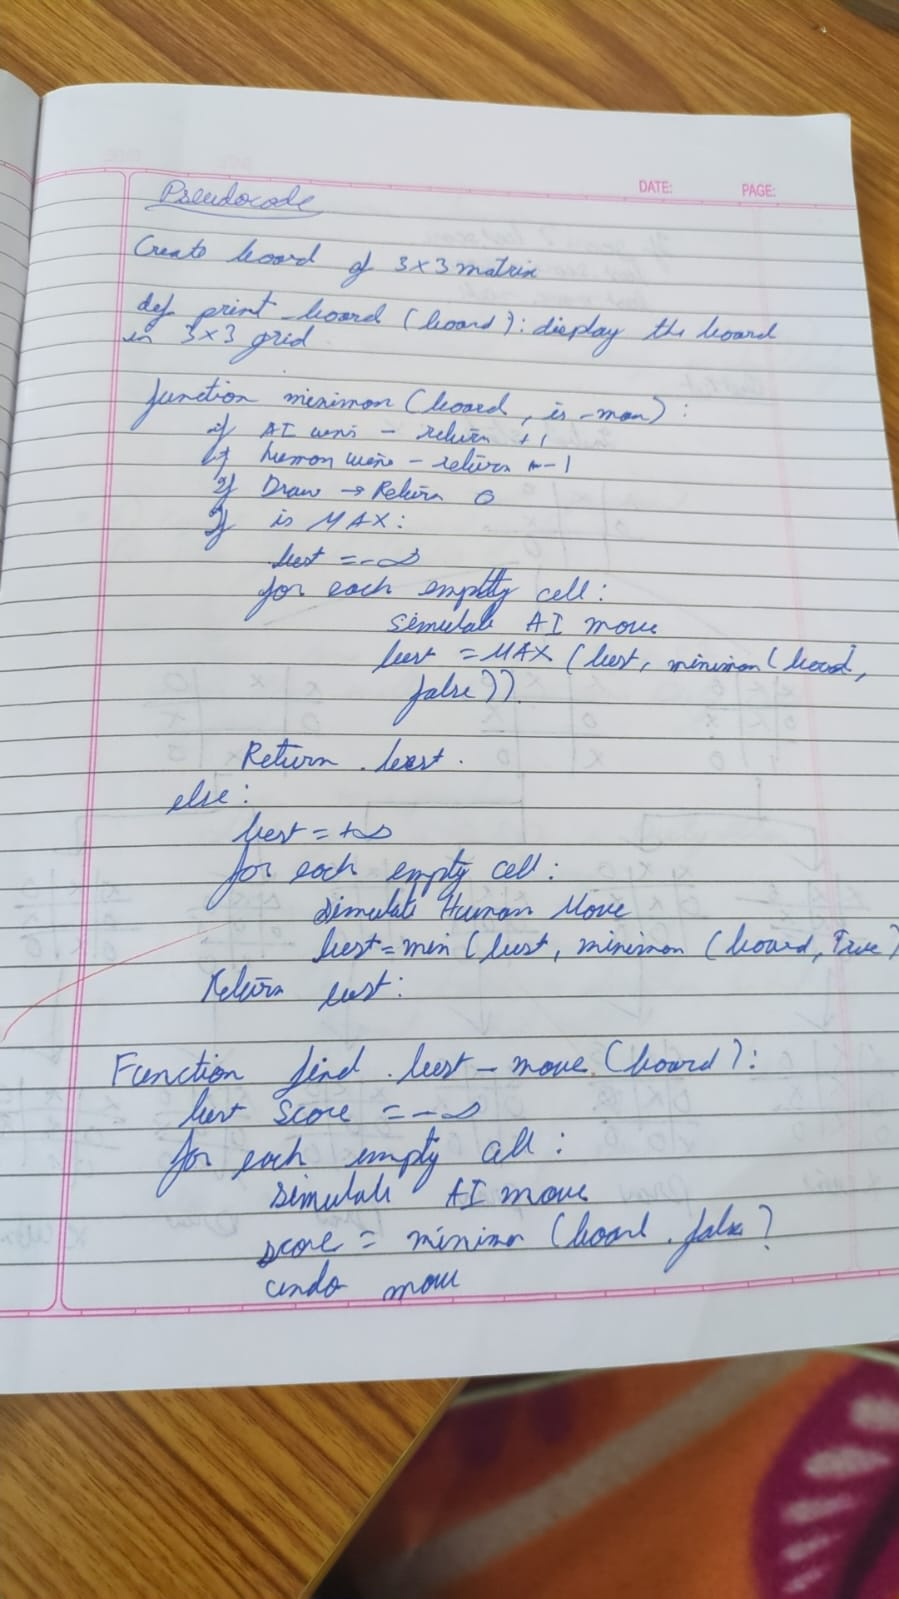 DATE:
PAGE:
Pseudocode
Create board of 3x3 matrix
def print-board (board): display the board
in 3x3 grid
function minimax (board, is-max):
if AI wins - return +1
if human wins - return -1
if Draw → Return 0
If is MAX:
best = -∞
for each empty cell:
simulate AI move
best = MAX (best, minimax (board,
false))
Return best.
else:
best = +∞
for each empty cell:
simulate Human Move
best = min (best, minimax (board, True)
Return best:
Function find best-move (board):
best score = -∞
for each empty cell:
simulate AI move
score = minimax (board, false)
undo move